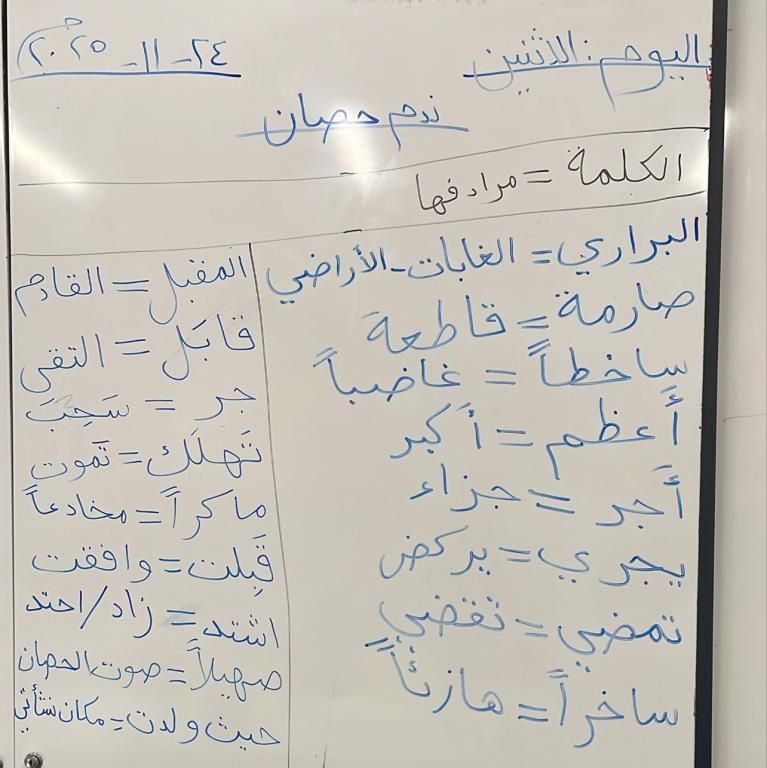 اليوم: الاثنين
٢٤-١١-٢٠٢٥م
ندم حصان
الكلمة = مرادفها
البراري = الغابات-الأراضي
صارمة = قاطعة
ساخطاً = غاضباً
أَعظم = أكبر
أَجر = جزاء
يجري = يركض
تمضي = تقضي
ساخراً = هازئاً
المقبل = القادم
قابَل = التقى
جر = سَحِبَ
تَهلَك = تَموت
ماكراً = مخادعاً
قَبِلت = وافقت
اشتد = زاد/احتد
صهيلاً = صوت الحصان
حيث ولدت = مكان نشأتي